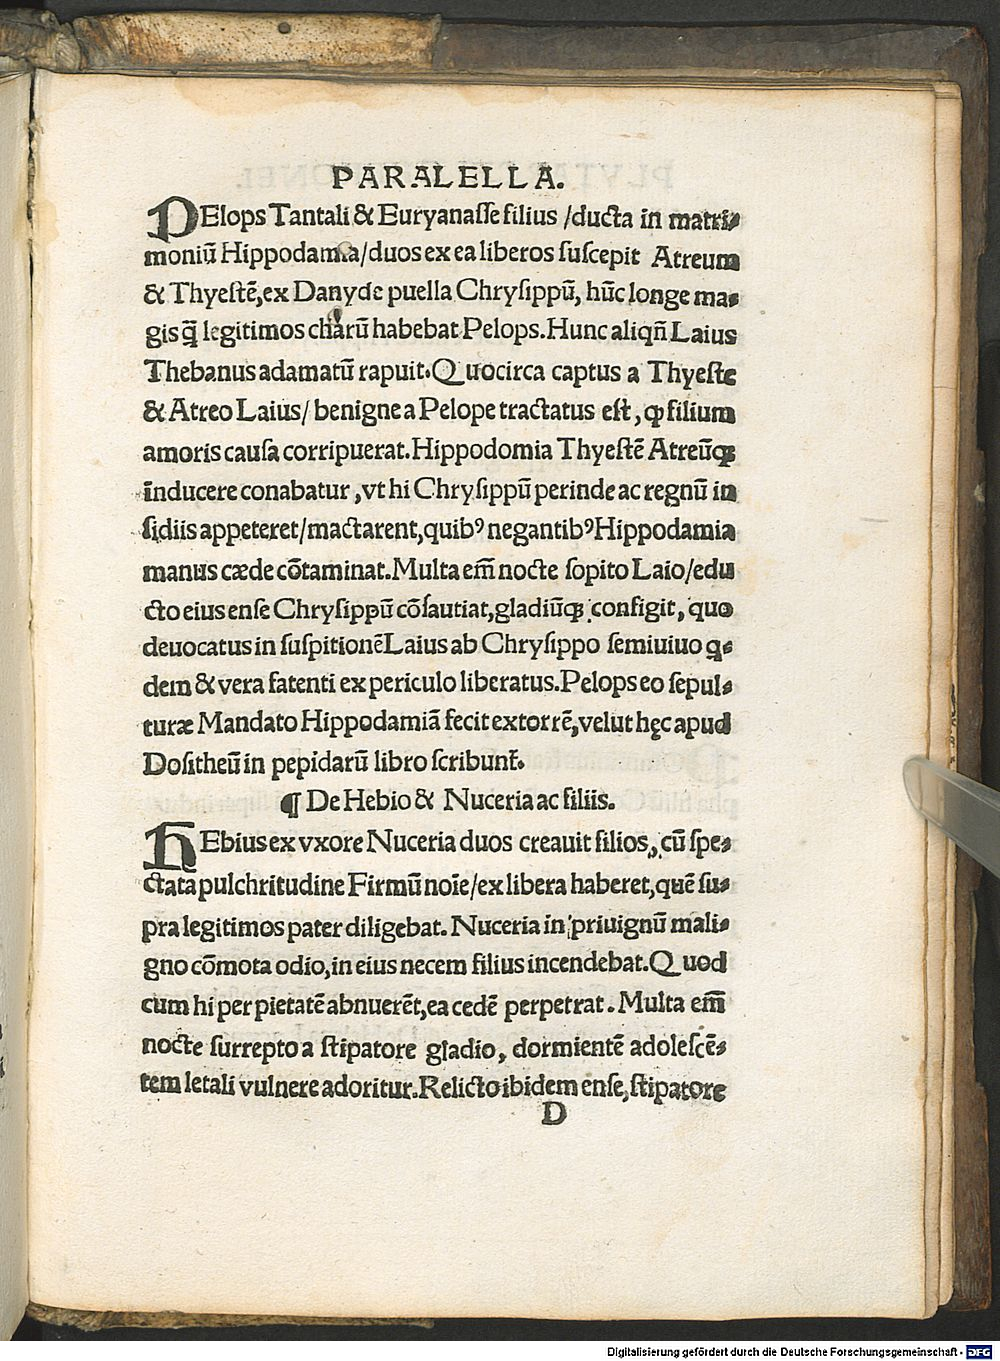 PARALELLA.
PElops Tantali & Euryanasse filius /ducta in matri⸗
moniū Hippodamia/duos ex ea liberos suscepit Atreum
& Thyestē,ex Danyde puella Chrysippū, hūc longe ma⸗
gis q̄ legitimos charū habebat Pelops.Hunc aliqñ Laius
Thebanus adamatū rapuit.Quocirca captus a Thyeste
& Atreo Laius/ benigne a Pelope tractatus est, ꝙ filium
amoris causa corripuerat.Hippodomia Thyestē Atreūqꝫ
inducere conabatur ,vt hi Chrysippū perinde ac regnū in
sidiis appeteret/mactarent,quibꝰ negantibꝰ Hippodamia
manus cæde cōtaminat.Multa em̄ nocte sopito Laio/edu
cto eius ense Chrysippū cōsautiat,gladiūqꝫ configit, quo
deuocatus in suspitionē Laius ab Chrysippo semiuiuo q⸗
dem & vera fatenti ex periculo liberatus.Pelops eo sepul⸗
turæ Mandato Hippodamiā fecit extorrē,velut hęc apud
Dositheū in pepidarū libro scribunt᷑.
¶ De Hebio & Nuceria ac filiis.
HEbius ex vxore Nuceria duos creauit filios, cū spe⸗
ctata pulchritudine Firmū noīe/ex libera haberet,quē su⸗
pra legitimos pater diligebat. Nuceria in priuignū mali⸗
gno cōmota odio,in eius necem filius incendebat.Quod
cum hi per pietatē abnuerēt,ea cedē perpetrat. Multa em̄
nocte surrepto a stipatore gladio, dormientē adolescē⸗
tem letali vulnere adoritur.Relicto ibidem ense,stipatore
D
Digitalisierung gefördert durch die Deutsche Forschungsgemeinschaft - DFG